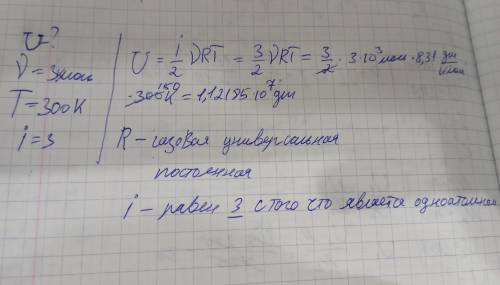 U-?
ν=3кмоль
T=300K
i=3
U = i/2 νRT = 3/2 νRT = 3/2 · 3·10³моль · 8,31 дж/кмоль
·300K 150 = 1,12185·10⁷дж
R – газовая универсальная
постоянная
i – равен 3 с того что является одноатомным